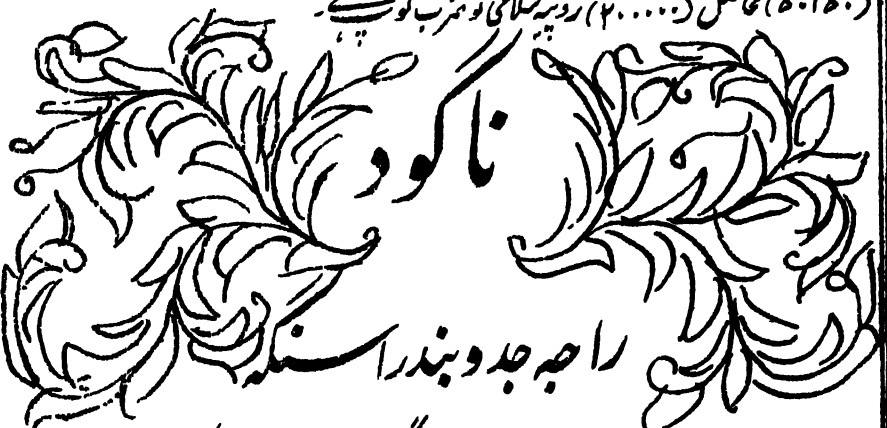 (۵۰۱۵۰) محاصل (۲۰۰۰۰۰) روپیہ سلامی
ناگود
راجہ جدوبندراسنگہ